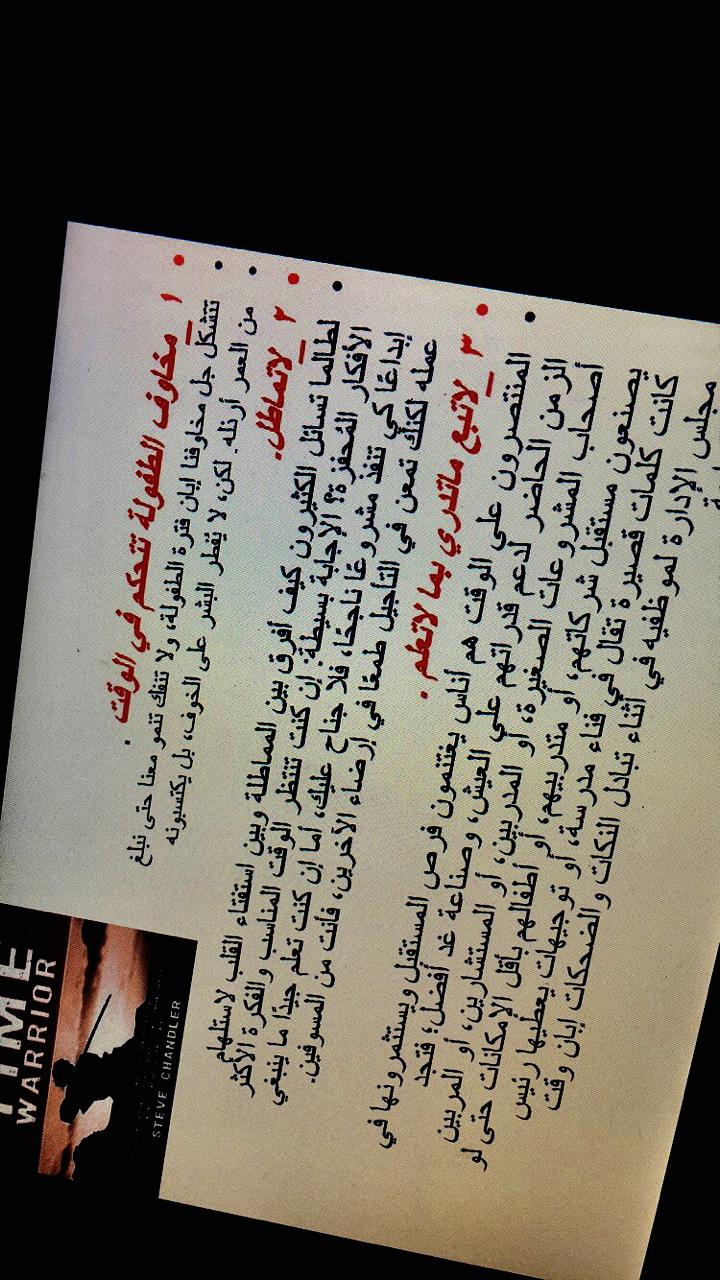 ١ _ مخاوف الطفولة تتحكم في الوقت .
تتشكل جل مخاوفنا إبان فترة الطفولة، ولا تنفك تنمو معنا حتى نبلغ
من العمر أرذله. لكن، لا يفطر البشر على الخوف، بل يكتسبونه
٢ _ لاتماطل.
لطالما تسائل الكثيرون كيف أفرق بين المماطلة وبين استفتاء القلب لاستلهام
الأفكار المُحفزة؟ الإجابة بسيطة: إن كنت تنتظر الوقت المناسب والفكرة الأكثر
إبداعًا كي تنفذ مشروعًا ناجحًا، فلا جناح عليك، أما إن كنت تعلم جيدًا ما ينبغي
عمله لكنك تمعن في التأجيل طمعًا في إرضاء الآخرين، فأنت من المسوفين.
٣ _ لاتبع ماتدري بما لاتعلم .
المنتصرون على الوقت هم أناس يغتنمون فرص المستقبل ويستثمرونها في
الزمن الحاضر لدعم قدراتهم على العيش، وصناعة غد أفضل؛ فتجد
أصحاب المشروعات الصغيرة، أو المدربين، أو المستشارين، أو المربين
يصنعون مستقبل شركاتهم، أو متدربيهم، أو أطفالهم بأقل الإمكانات حتى لو
كانت كلمات قصيرة تقال في فناء مدرسة، أو توجيهات يعطيها رئيس
مجلس الإدارة لموظفيه في أثناء تبادل النكات والضحكات إبان وقت
TIME
WARRIOR
STEVE CHANDLER